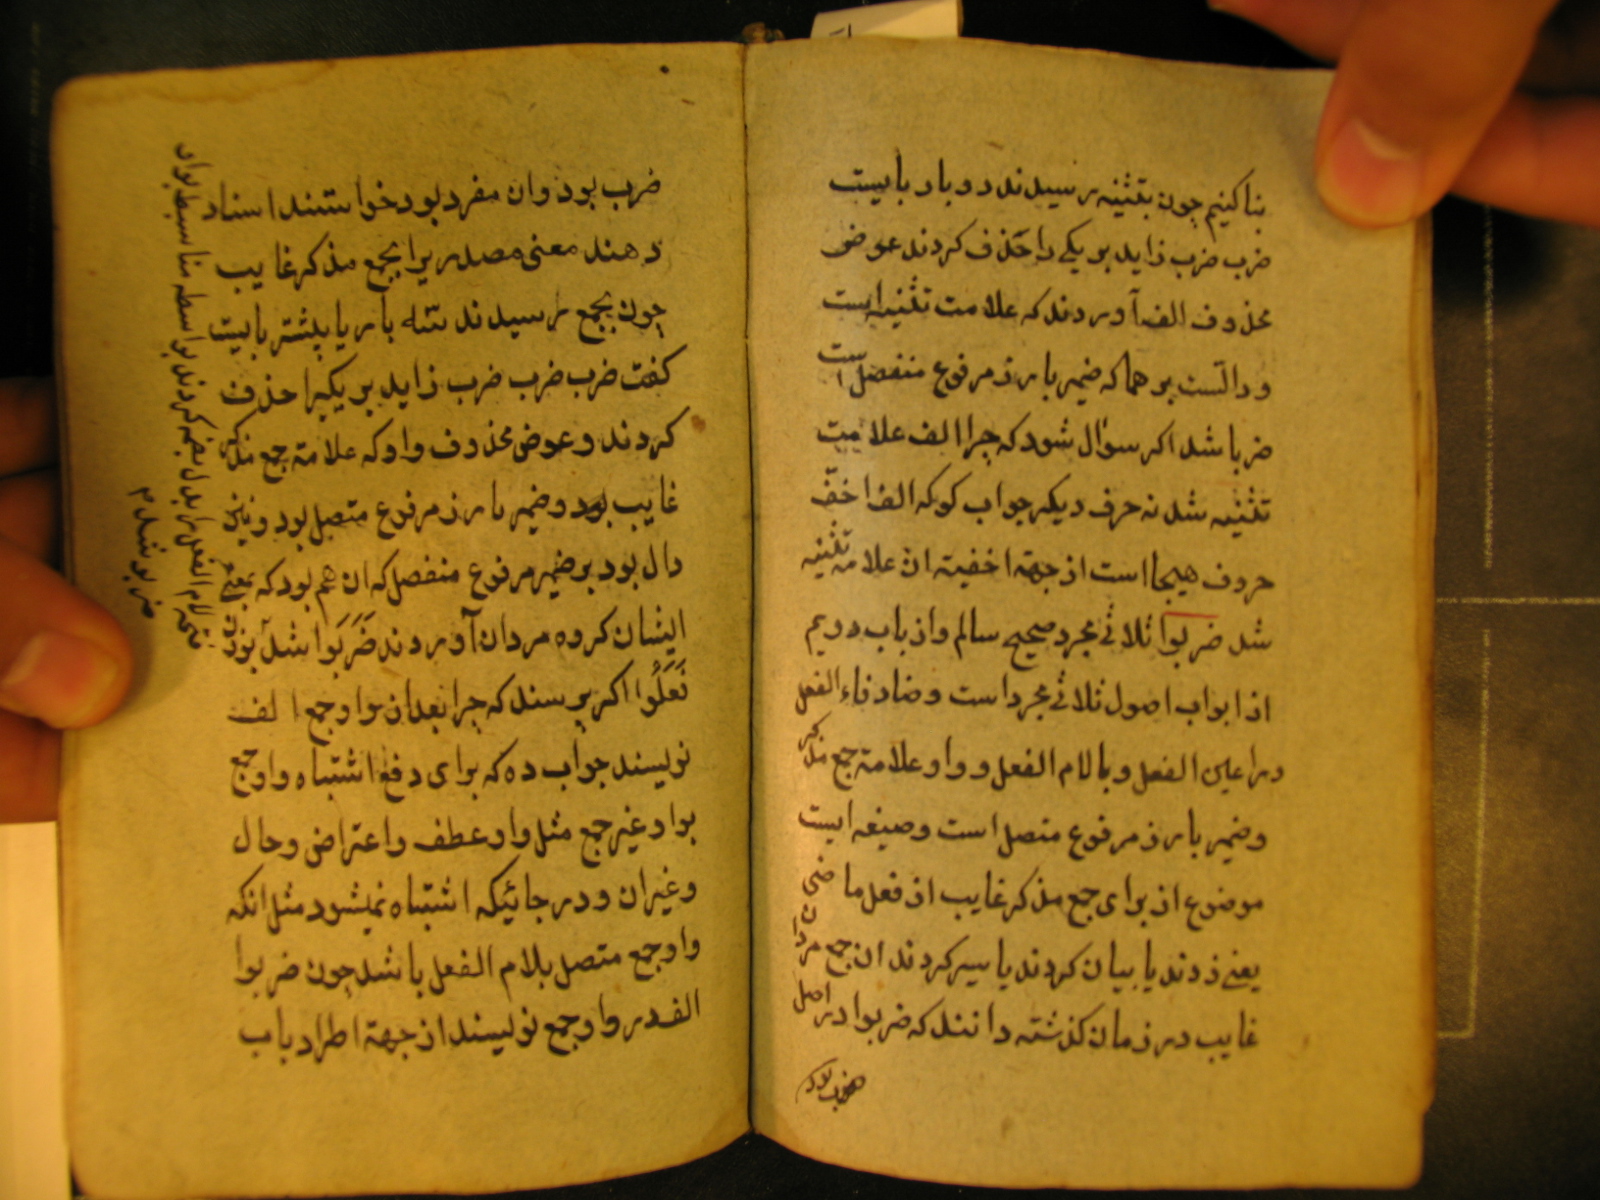 بنا کنیم چون بتثنیه رسیدند دو بار بایست
ضرب ضرب زاید بر یکی را حذف کردند عوض
محذوف الف آوردند که علامت تثنیه است
و دالست بر هما که ضمیر بارز مرفوع منفصل است
ضربا شد اکر سوال شود که چرا الف علامت
تثنیه شد نه حرف دیکر جواب کو که الف اخف
حروف هیجا است از جهة اخفیته ان علامة تثنیه
شد ضربوا ثلاثی مجرد صحیح سالم و از باب دویم
از ابواب اصول ثلاثی مجرد است و ضاد فاء الفعل
و را عین الفعل و با لام الفعل و واو علامة جمع مذکر
و ضمیر بارز مرفوع متصل است و صیغه ایست
موضوع از برای جمع مذکر غایب از فعل ماضی
یعنی زدند یا بیان کردند یا سیر کردند ان جمع مردان
غایب در زمان کذشته دانند که ضربوا در اصل
ضرب بود
ضرب بود و ان مفرد بود خواستند اسناد
دهند معنی مصدر برا بجمع مذکر غایب
چون بجمع رسیدند سته بار یا بیشتر بایست
کفت ضرب ضرب ضرب زاید بر یکیرا حذف
کردند و عوض محذوف واو که علامة جمع مذکر
غایب بود و ضمیر بارز مرفوع متصل بود و نیز
دال بود بر ضمیر مرفوع منفصل که ان هم بود که بمعنی
ایشان کروه مردان آوردند ضَرَبَوا شد بوزن
فَعَلُوا اکر پرسند که چرا بعد از واو جمع الف
نویسند جواب ده که برای دفع اشتباه واو جمع
بواو غیر جمع مثل واو عطف و اعتراض و حال
و غیر ان و در جائیکه اشتباه نمیشود مثل انکه
واو جمع متصل بلام الفعل باشد چون ضربوا
الف در واو جمع نویسند از جهة اطراد باب
فتحه لام الفعل را بدل بضم کردند بواسطه مناسبة واو
ضربوا شد